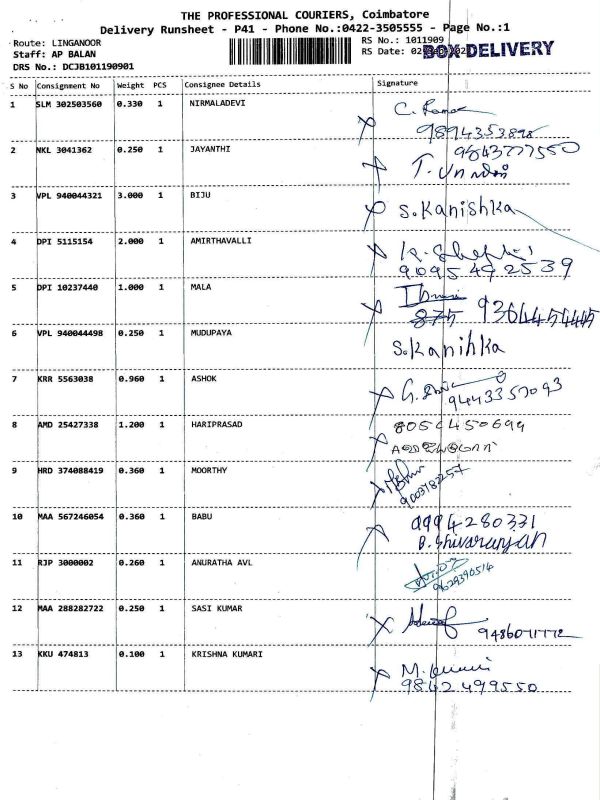 THE PROFESSIONAL COURIERS, Coimbatore
Delivery Runsheet - P41 - Phone No.:0422-3505555 - Page No.:1
Route: LINGANOOR
RS No.: 1011909
Staff: AP BALAN
RS Date: BOX DELIVERY
DRS No.: DCJB101190901
S No Consignment No Weight PCS Consignee Details Signature
1 SLM 302503560 0.330 1 NIRMALADEVI
9894353898
2 NKL 3041362 0.250 1 JAYANTHI 9843777550
3 VPL 940044321 3.000 1 BIJU S.Kanishka
4 DPI 5115154 2.000 1 AMIRTHAVALLI
9095492539
5 DPI 10237440 1.000 1 MALA
875 9364454445
6 VPL 940044498 0.250 1 MUDUPAYA S.Kanihka
7 KRR 5563038 0.960 1 ASHOK
9443357093
8 AMD 25427338 1.200 1 HARIPRASAD
9 HRD 374088419 0.360 1 MOORTHY
9003782257
10 MAA 567246054 0.360 1 BABU 9994280331
B.Shivaranjan
11 RJP 3000002 0.260 1 ANURATHA AVL
9629390514
12 MAA 288282722 0.250 1 SASI KUMAR
13 KKU 474813 0.100 1 KRISHNA KUMARI
9842499550